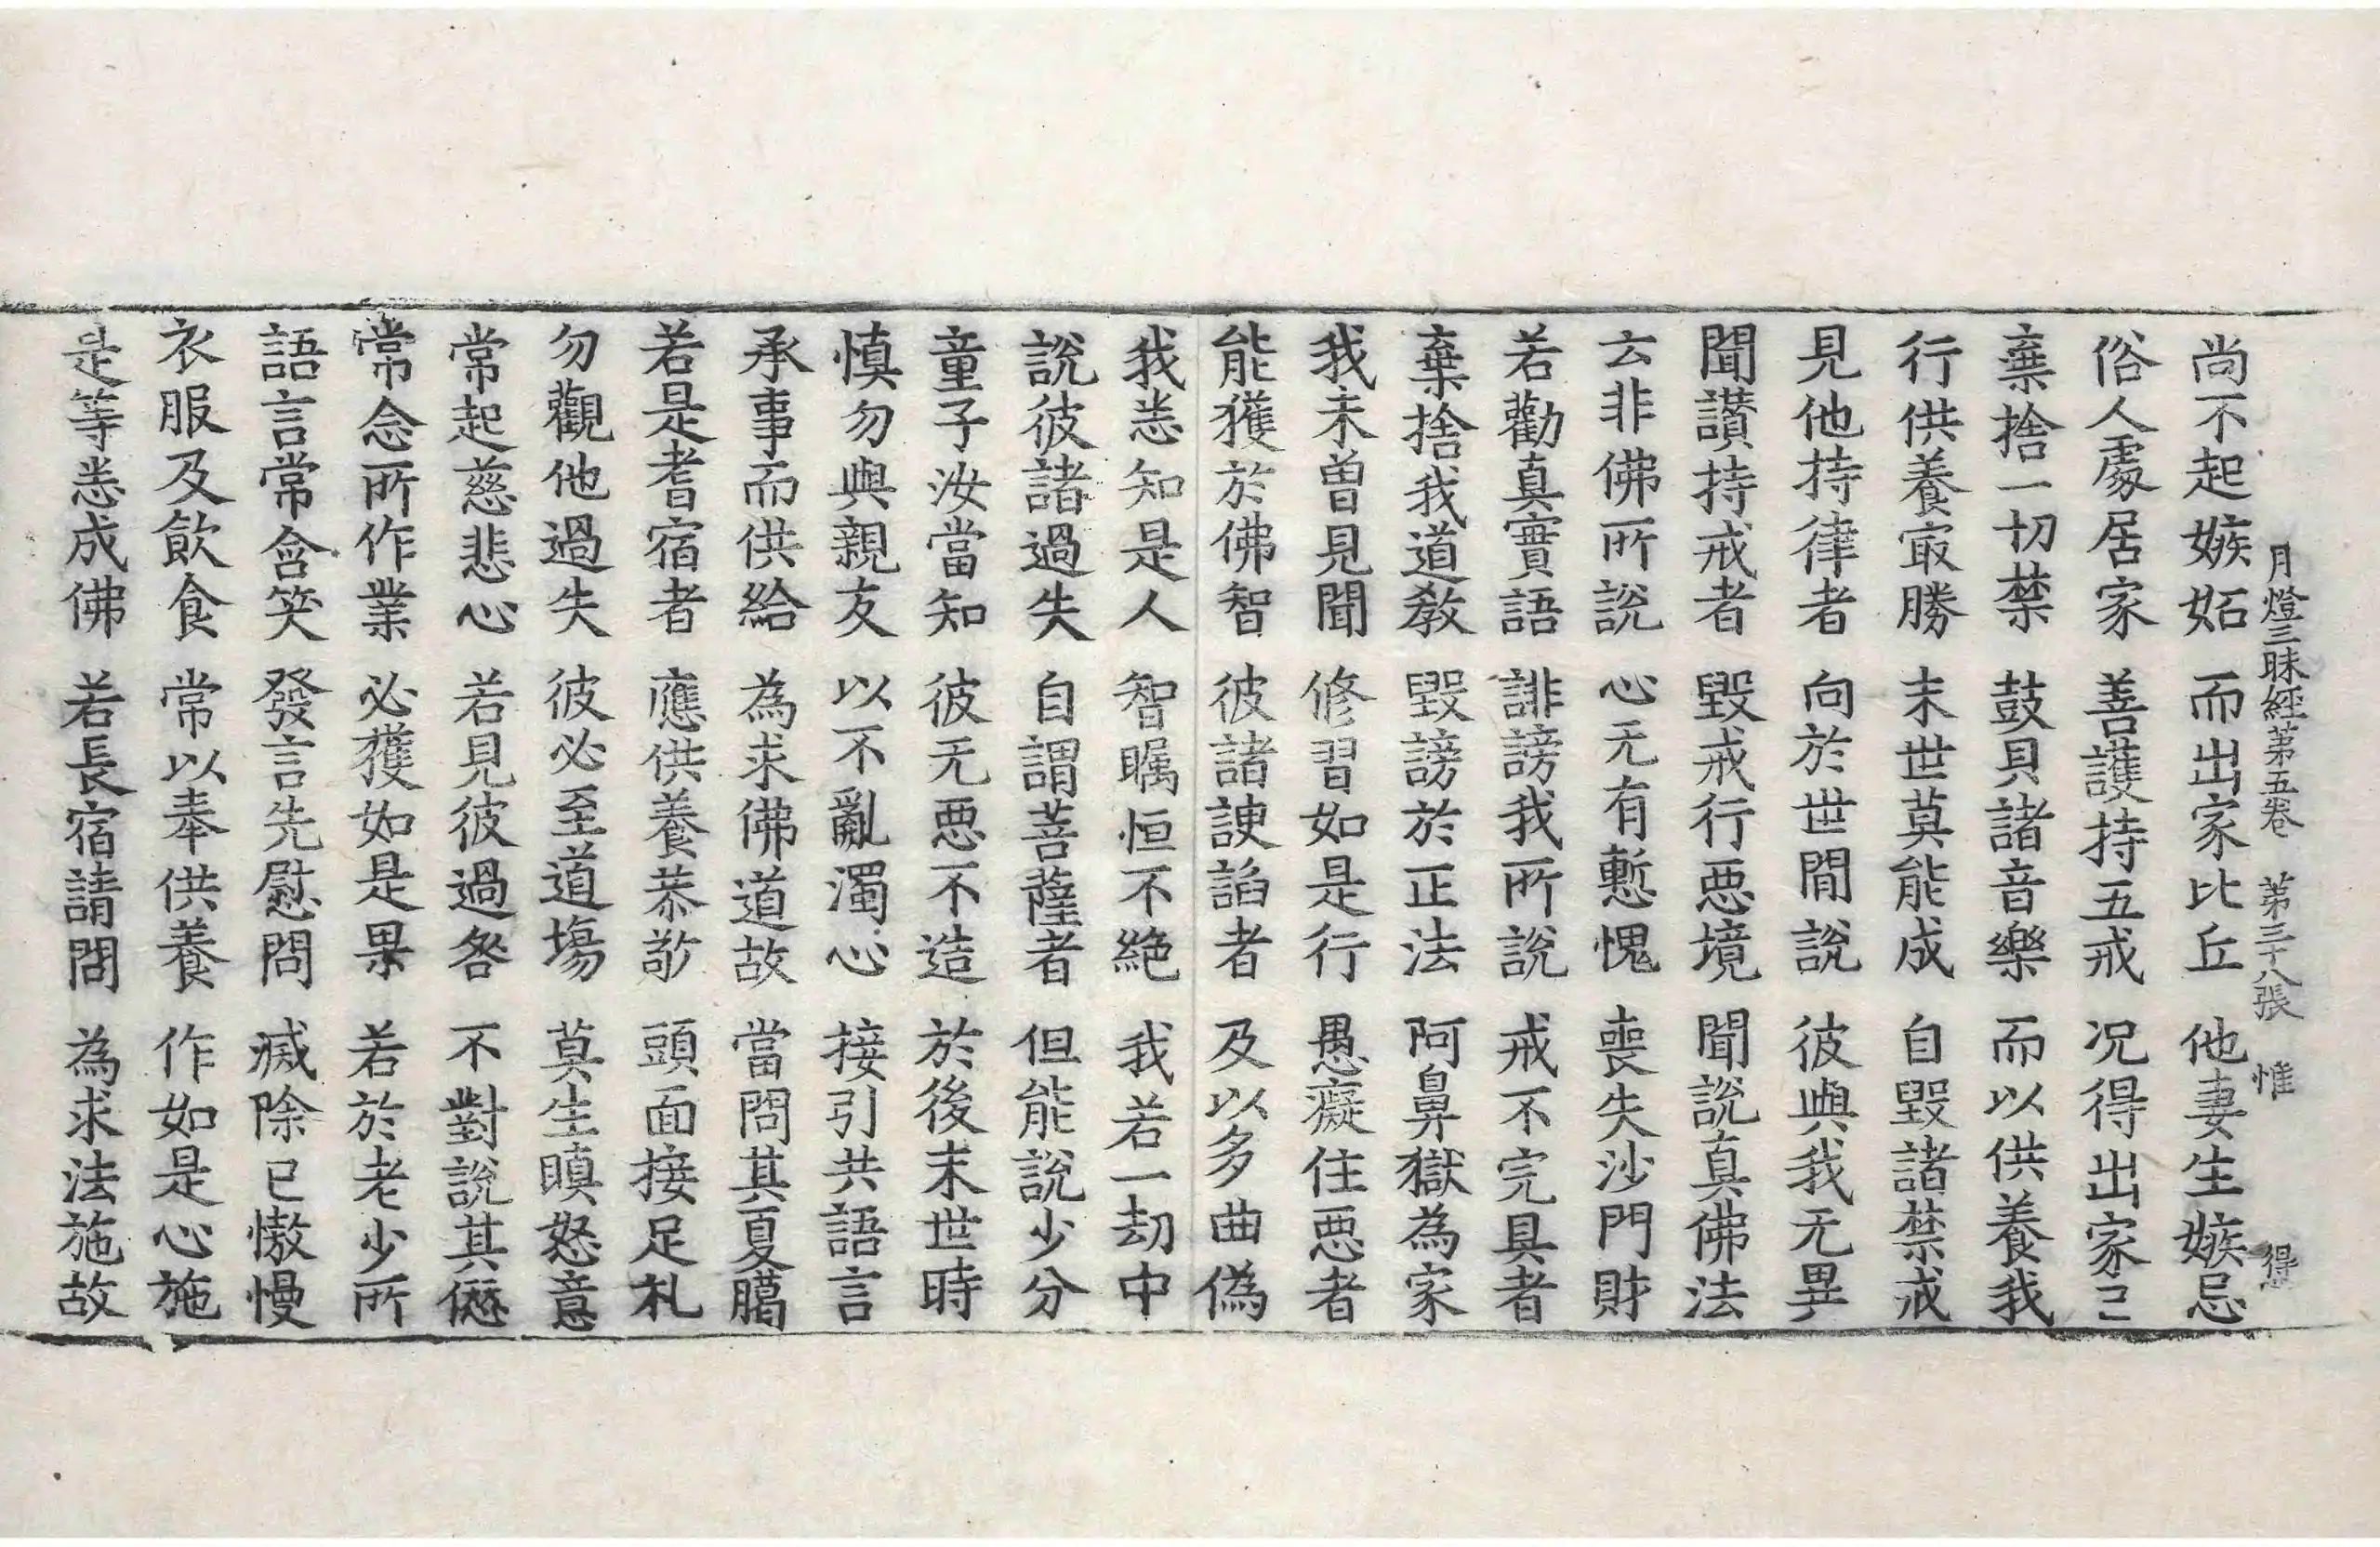 月燈三昧經第五卷　第三十八張　惟　得
尚不起嫉妬　而出家比丘　他妻生嫉忌
俗人處居家　善護持五戒　况得出家已
棄捨一切禁　鼓貝諸音樂　而以供養我
行供養冣勝　末世莫能成　自毀諸禁戒
見他持律者　向於世間說　彼與我无異
聞讃持戒者　毀戒行惡境　聞說真佛法
云非佛所說　心无有慙愧　喪失沙門財
若勸真實語　誹謗我所說　戒不完具者
棄捨我道教　毀謗於正法　阿鼻獄為家
我未曾見聞　修習如是行　愚癡住惡者
能獲於佛智　彼諸諛諂者　及以多曲偽
我悉知是人　智矚恒不絶　我若一劫中
說彼諸過失　自謂菩薩者　但能說少分
童子汝當知　彼无惡不造　於後末世時
慎勿與親友　以不亂濁心　接引共語言
承事而供給　為求佛道故　當問其夏臈
若是耆宿者　應供養恭敬　頭面接足礼
勿觀他過失　彼必至道場　莫生瞋怒意
常起慈悲心　若見彼過咎　不對說其𠎝
常念所作業　必獲如是果　若於老少所
語言常含笑　發言先慰問　滅除已憿慢
衣服及飲食　常以奉供養　作如是心施
是等悉成佛　若長宿請問　為求法施故